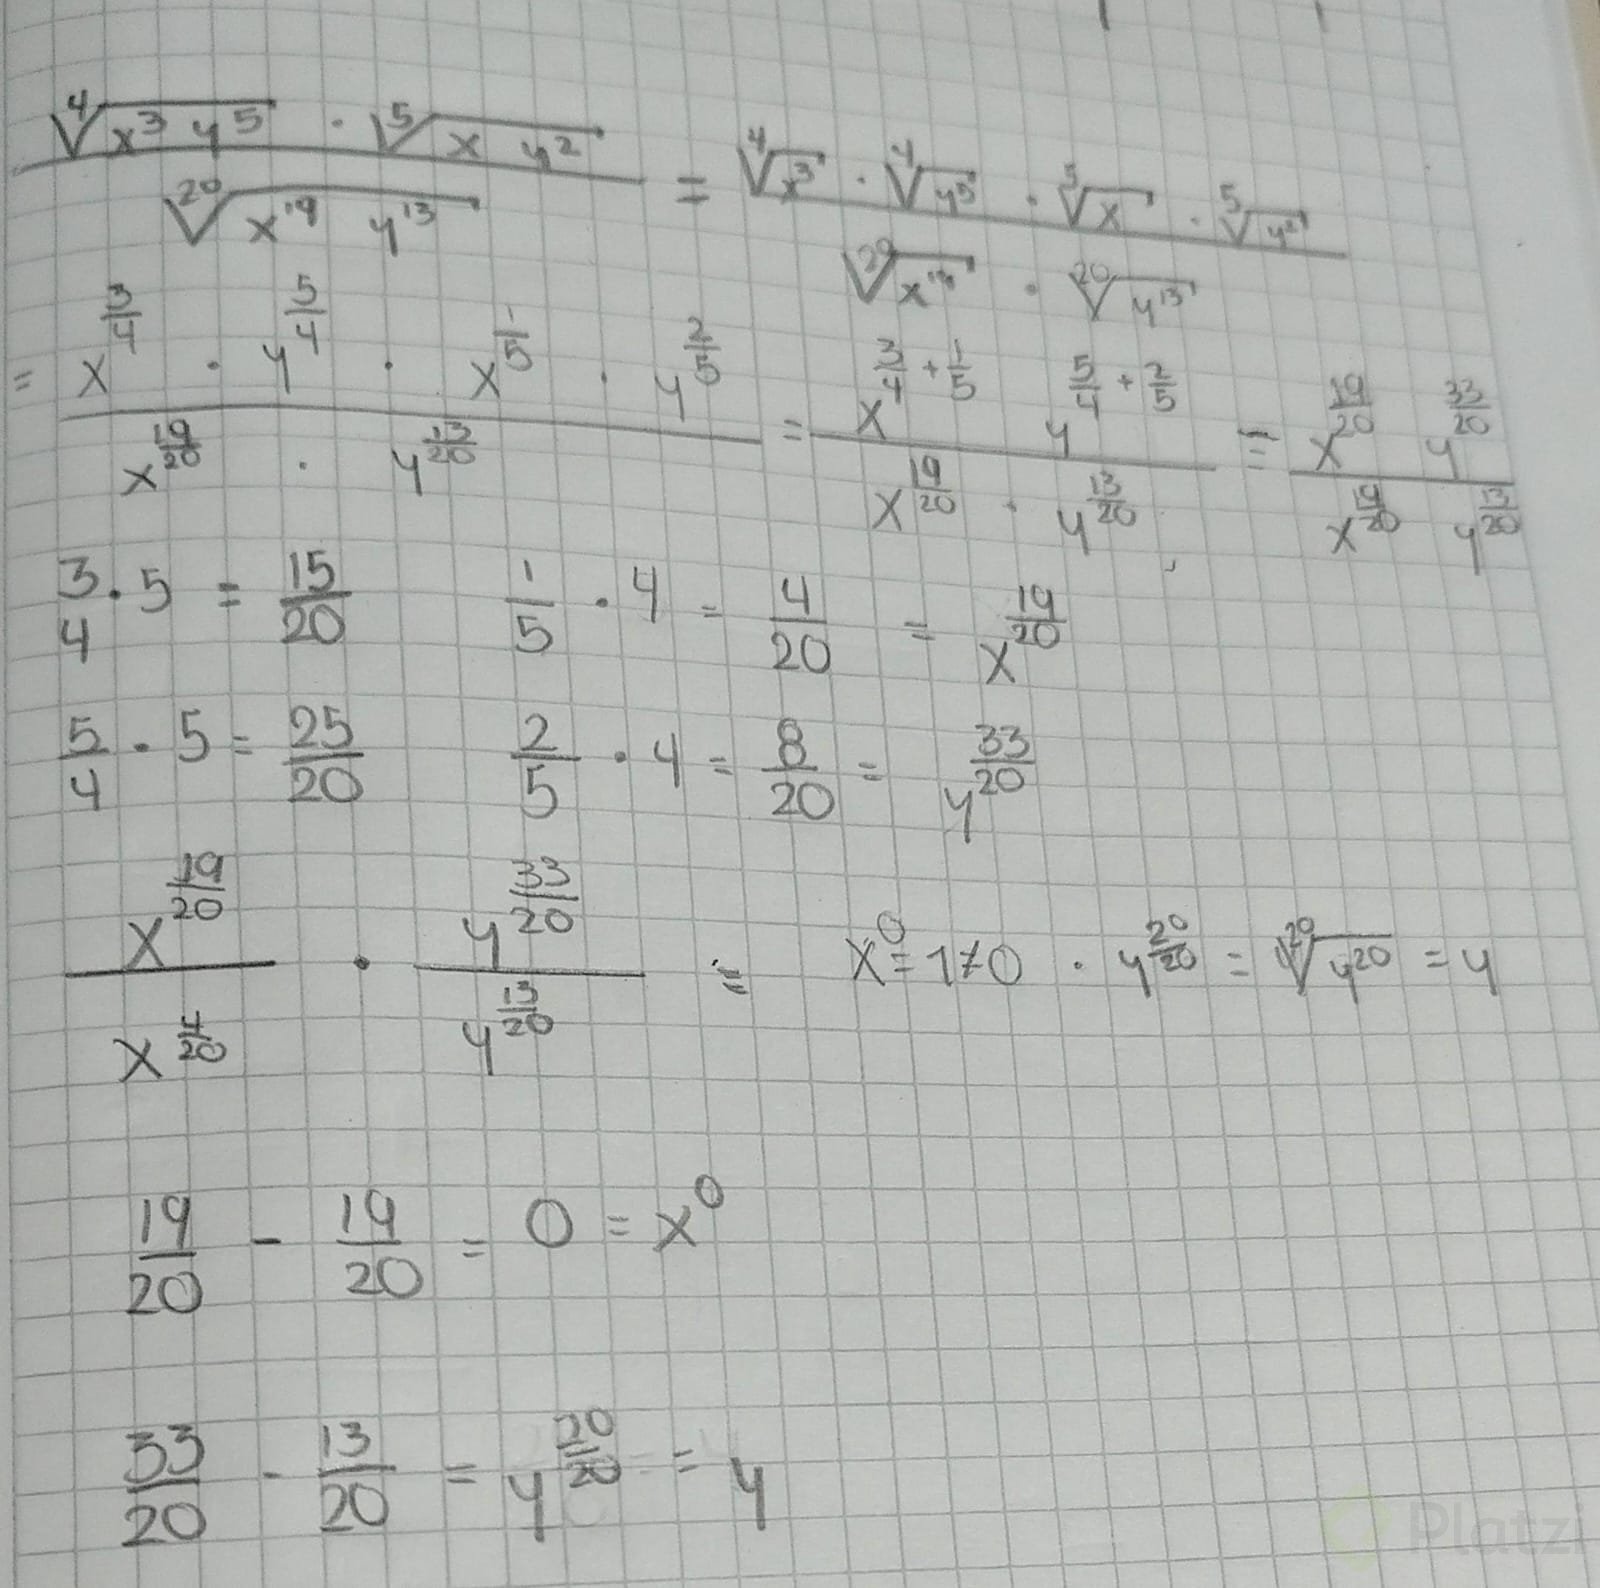 ⁴√(x³ y⁵) · ⁵√(x y²) / ²⁰√(x¹⁹ y¹³) = ⁴√(x³) · ⁴√(y⁵) · ⁵√(x) · ⁵√(y²) / ²⁰√(x¹⁹) · ²⁰√(y¹³)
= x^(3/4) · y^(5/4) · x^(1/5) · y^(2/5) / x^(19/20) · y^(13/20) = x^(3/4 + 1/5) y^(5/4 + 2/5) / x^(19/20) · y^(13/20) = x^(19/20) y^(33/20) / x^(19/20) y^(13/20)
3/4 · 5 = 15/20 1/5 · 4 = 4/20 = x^(19/20)
5/4 · 5 = 25/20 2/5 · 4 = 8/20 = y^(33/20)
x^(19/20) / x^(4/20) · y^(33/20) / y^(13/20) = x⁰ = 1 ≠ 0 · y^(20/20) = ²⁰√(y²⁰) = y
19/20 - 19/20 = 0 = x⁰
33/20 - 13/20 = y^(20/20) = y
Platzi